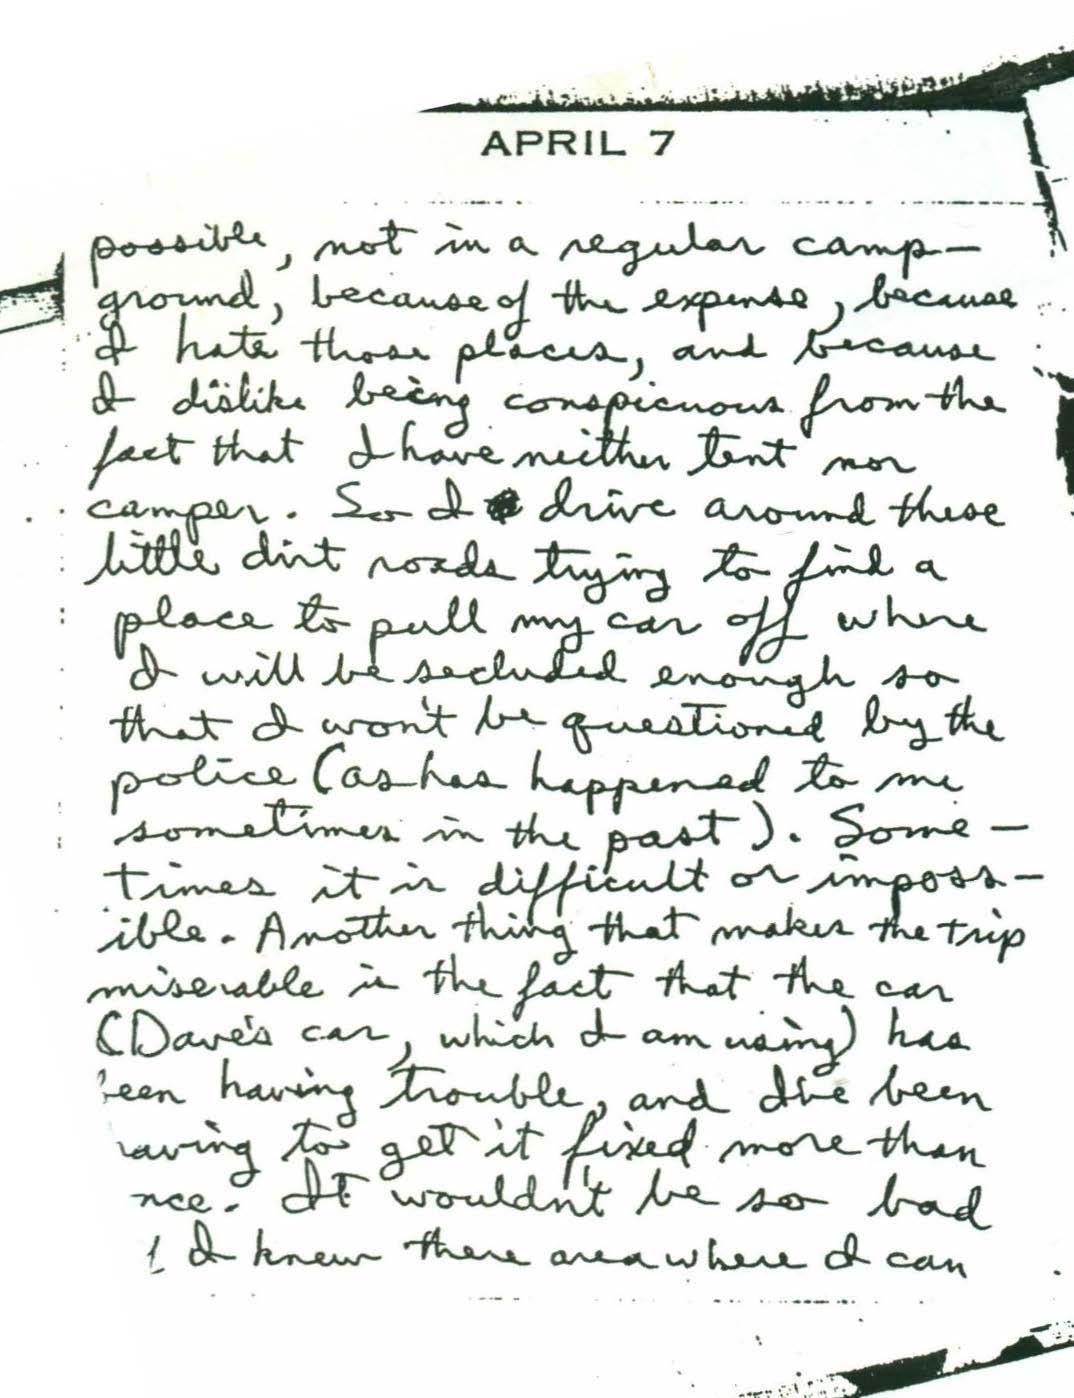 APRIL 7
possible, not in a regular camp-
ground, because of the expense, because
I hate those places, and because
I dislike being conspicuous from the
fact that I have neither tent nor
camper. So I drive around these
little dirt roads trying to find a
place to pull my car off where
I will be secluded enough so
that I won't be questioned by the
police (as has happened to me
sometimes in the past). Some-
times it is difficult or imposs-
ible. Another thing that makes the trip
miserable is the fact that the car
(Dave's car, which I am using) has
een having trouble, and I've been
aving to get it fixed more than
nce. It wouldn't be so bad
I knew there area where I can